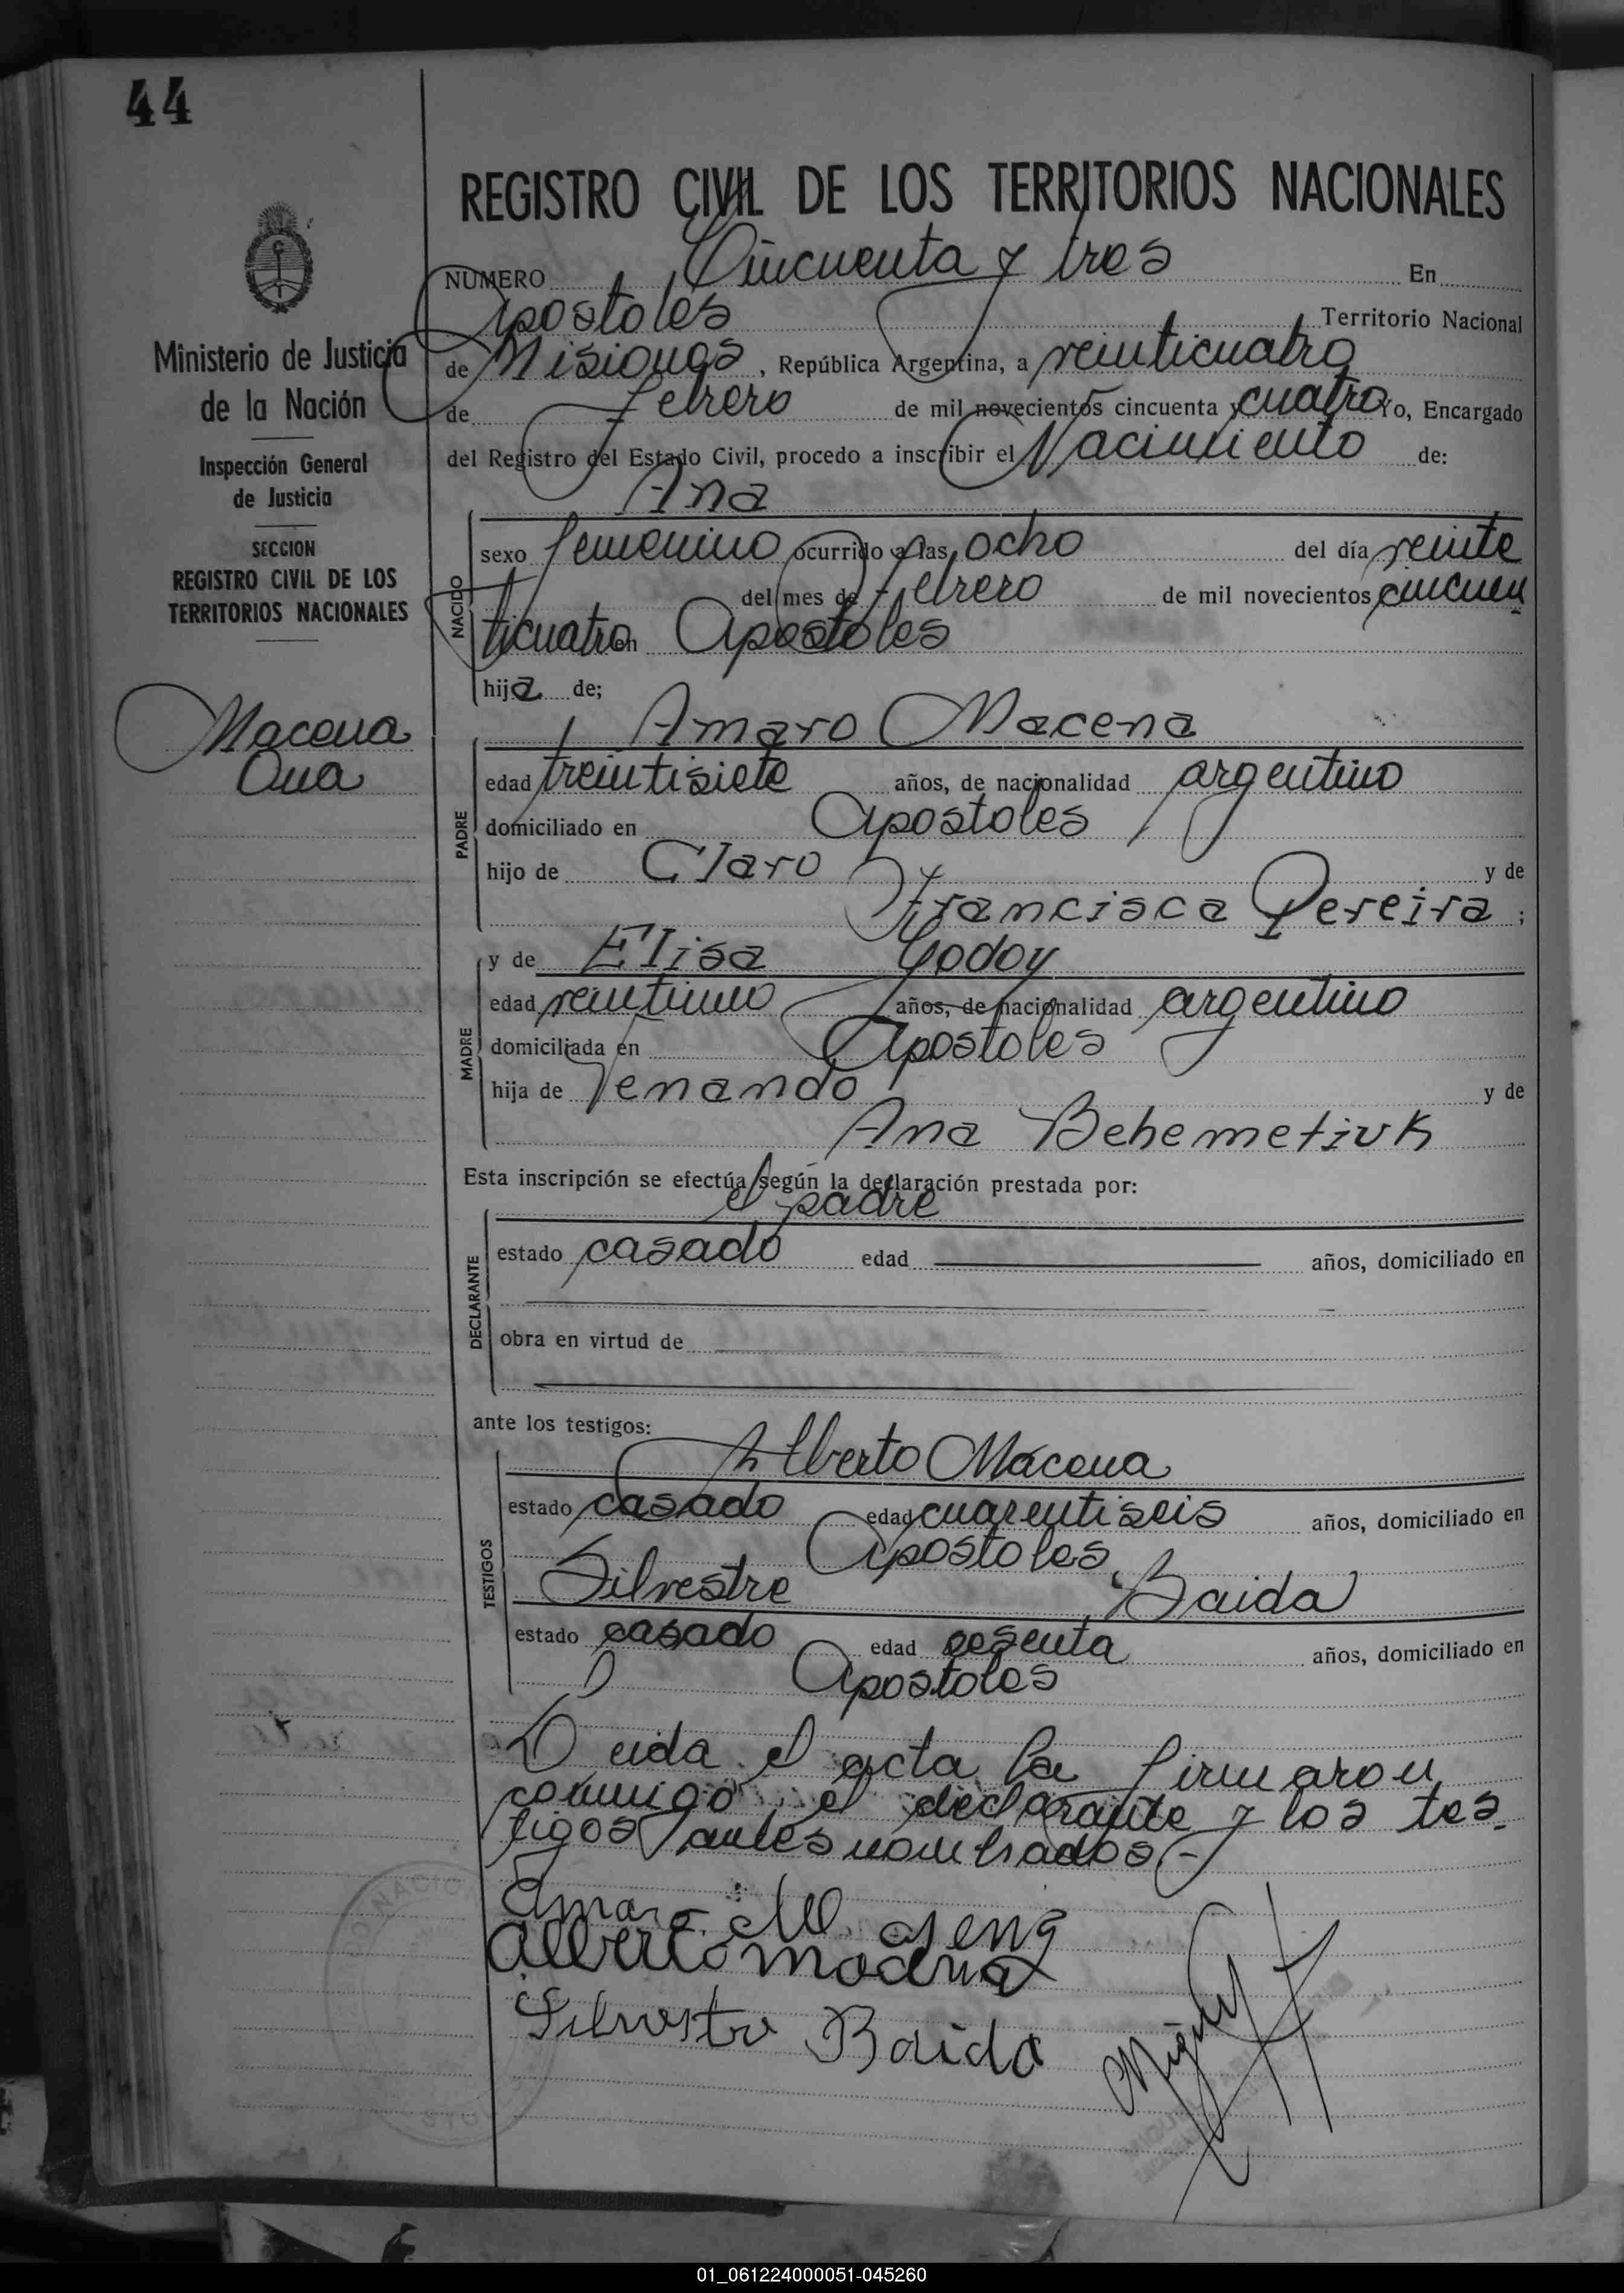 44
REGISTRO CIVIL DE LOS TERRITORIOS NACIONALES
Ministerio de Justicia
de la Nación
Inspección General
de Justicia
SECCION
REGISTRO CIVIL DE LOS
TERRITORIOS NACIONALES
Macena
Ana
NUMERO Cincuenta y tres En
Apostoles Territorio Nacional
de Misiones, República Argentina, a veinticuatro
de Febrero de mil novecientos cincuenta y cuatro Yo, Encargado
del Registro del Estado Civil, procedo a inscribir el Nacimiento de:
Ana
NACIDO
sexo femenino ocurrido a las ocho del día veinte
del mes de Febrero de mil novecientos cincuen
ticuatro en Apostoles
hija de;
Amaro Macena
PADRE
edad treintisiete años, de nacionalidad argentino
domiciliado en Apostoles
hijo de Claro y de
Francisca Pereira;
y de Elisa Godoy
MADRE
edad años, de nacionalidad argentino
domiciliada en Apostoles
hija de Venando y de
Ana Behemetiuk
Esta inscripción se efectúa según la declaración prestada por:
el padre
DECLARANTE
estado casado edad años, domiciliado en
obra en virtud de
ante los testigos:
Alberto Macena
TESTIGOS
estado casado edad cuarentiseis años, domiciliado en
Apostoles
Silvestre Baida
estado casado edad sesenta años, domiciliado en
Apostoles
Leida el acta la firmaron
conmigo, el declarante y los tes-
tigos antes nombrados-
Amaro
Alberto
Silvestre Baida
01_061224000051-045260